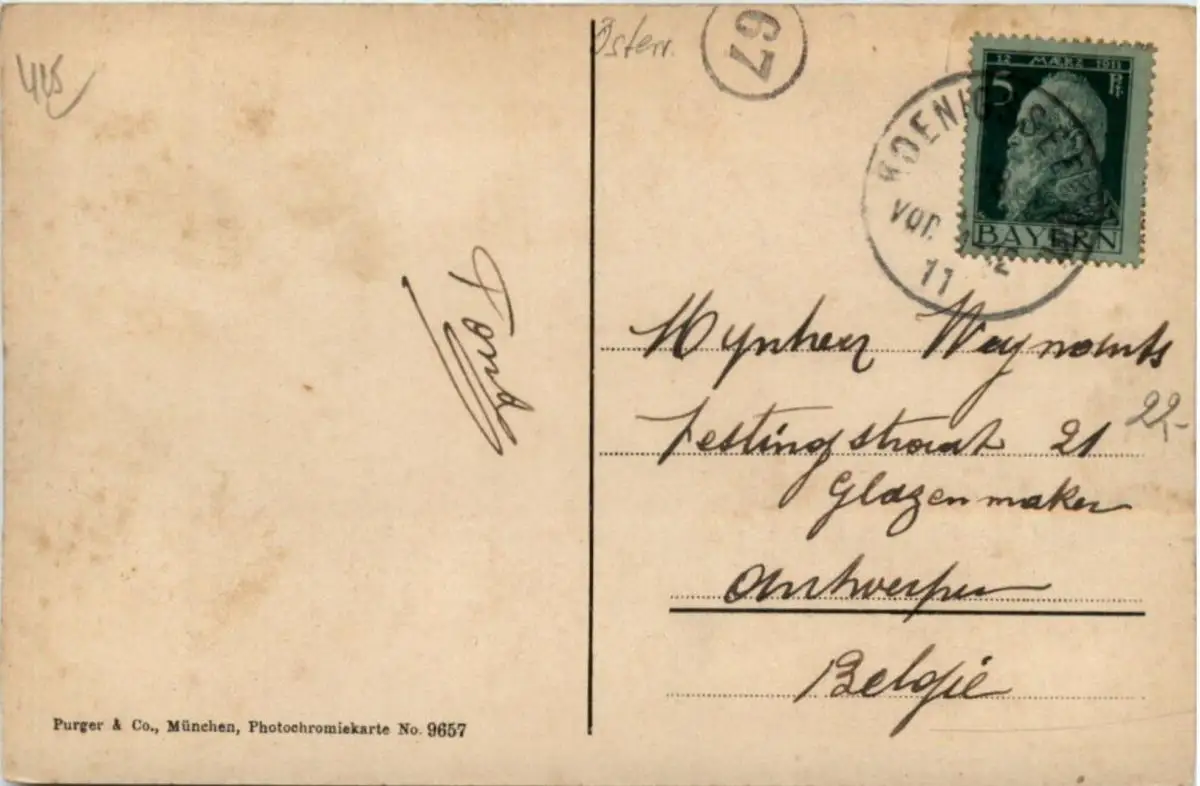 Österr.
67
12 MÆRZ 1911
5 Pf.
BAYERN
KOENIGSSEE
Vor. 11-12
11
Mynheer Weynants
Vestingstraat 21
22,-
Glazenmaker
Antwerpen
Belgie
Purger & Co., München, Photochromiekarte No. 9657